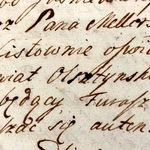 Pana Mellers
listownie opow
wiat Olsztyńsk
będący Furasz
zać się auten